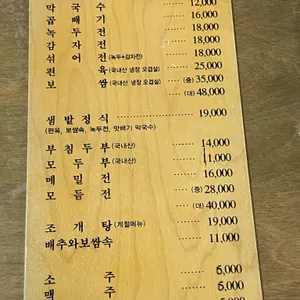 막 국 수 ········ 12,000
곱 배 기 ········ 16,000
녹 두 전 ········ 18,000
감 자 전 ········ 18,000
섞 어 전 (녹두+감자전) ········ 18,000
편 육 (국내산 냉장 오겹살) ········ 25,000
보 쌈 (국내산 냉장 오겹살) (중) 35,000
(대) 48,000
샘 밭 정 식 ········ 19,000
(편육, 보쌈속, 녹두전, 맛배기 막국수)
부 침 두 부 (국내산) ········ 14,000
모 두 부 (국내산) ········ 11,000
메 밀 전 ········ 16,000
모 듬 전 (중) 28,000
(대) 40,000
조 개 탕 (계절메뉴) ········ 19,000
배추와보쌈속 ········ 11,000
소 주 ········ 5,000
맥 주 ········ 5,000